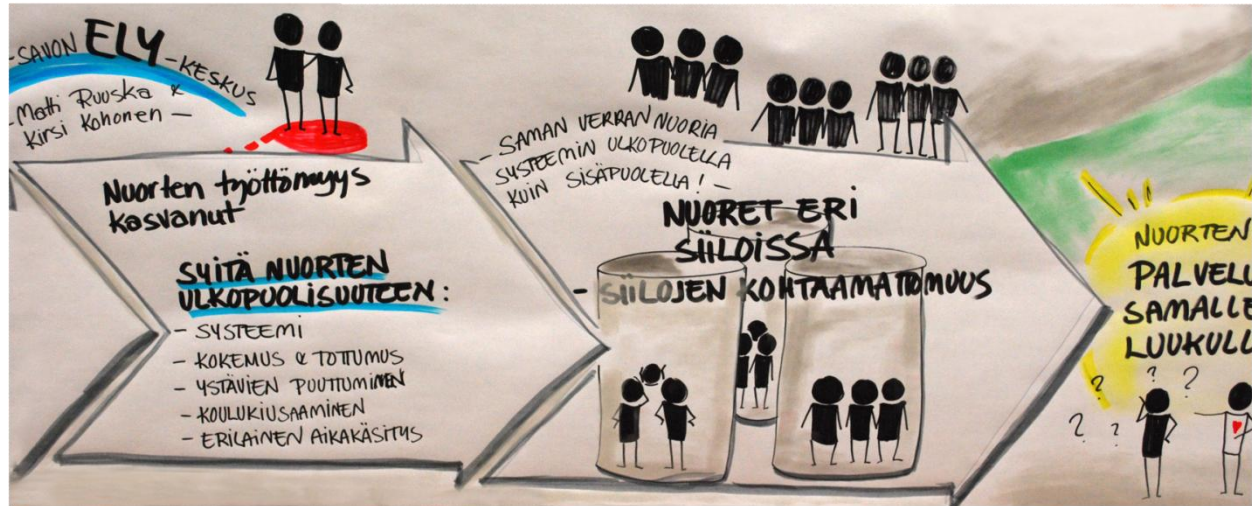 -SAVON ELY -KESKUS
-Matti Ruuska &
Kirsi Kohonen -
Nuorten työttömyys
kasvanut
SYITÄ NUORTEN
ULKOPUOLISUUTEEN:
- SYSTEEMI
- KOKEMUS & TOTTUMUS
- YSTÄVIEN PUUTTUMINEN
- KOULUKIUSAAMINEN
- ERILAINEN AIKAKÄSITYS
- SAMAN VERRAN NUORIA
SYSTEEMIN ULKOPUOLELLA
KUIN SISÄPUOLELLA! -
NUORET ERI
SIILOISSA
- SIILOJEN KOHTAAMATTOMUUS
NUORTEN
PALVELU
SAMALLE
LUUKULL
? ? ?
? ?